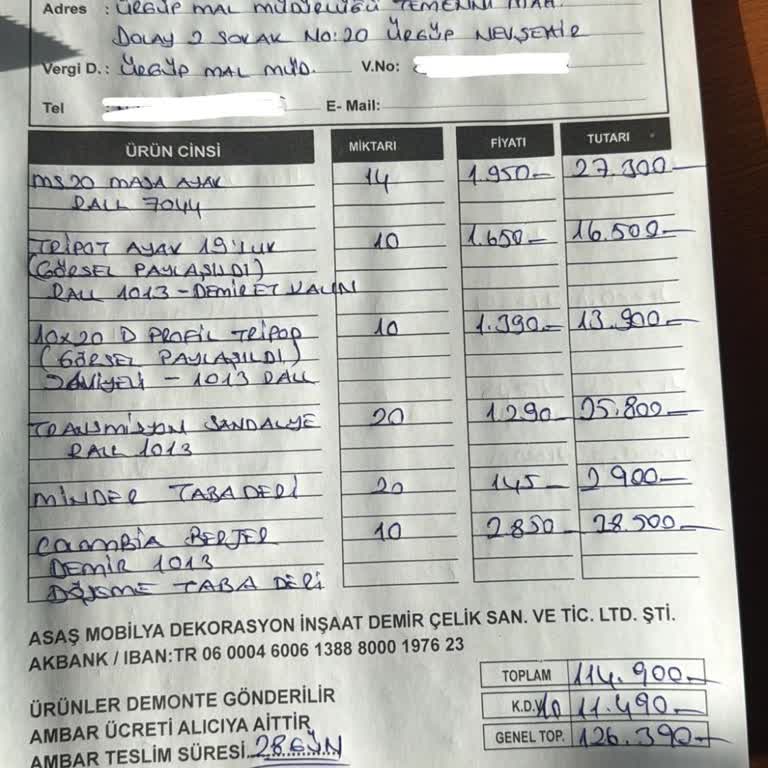 Adres : ÜRGÜP MAL MÜDÜRLÜĞÜ TEMENNİ MAH.
DOLAY 2 SOKAK NO:20 ÜRGÜP NEVŞEHİR
Vergi D.: ÜRGÜP MAL MÜD. V.No:
Tel E- Mail:
ÜRÜN CİNSİ MİKTARI FİYATI TUTARI
MS20 MASA AYAK 14 1.950 27.300
RALL 7044
TRİPOT AYAK 19'LUK 10 1.650 16.500
(GÖRSEL PAYLAŞILDI)
RALL 1013-DEMİR ET KALIN
10x20 D PROFİL TRİPOD 10 1.390 13.900
(GÖRSEL PAYLAŞILDI)
- 1013 RALL
TRANSMİSYON SANDALYE 20 1.290 25.800
RALL 1013
MİNDER TABA DERİ 20 145 2900
BERJER 10 2.850 28.500
DEMİR 1013
DÖŞEME TABA DERİ
ASAŞ MOBİLYA DEKORASYON İNŞAAT DEMİR ÇELİK SAN. VE TİC. LTD. ŞTİ.
AKBANK / IBAN:TR 06 0004 6006 1388 8000 1976 23
TOPLAM 114.900
ÜRÜNLER DEMONTE GÖNDERİLİR
K.D.V 10 11.490
AMBAR ÜCRETİ ALICIYA AİTTİR
GENEL TOP. 126.390
AMBAR TESLİM SÜRESİ 28 GÜN